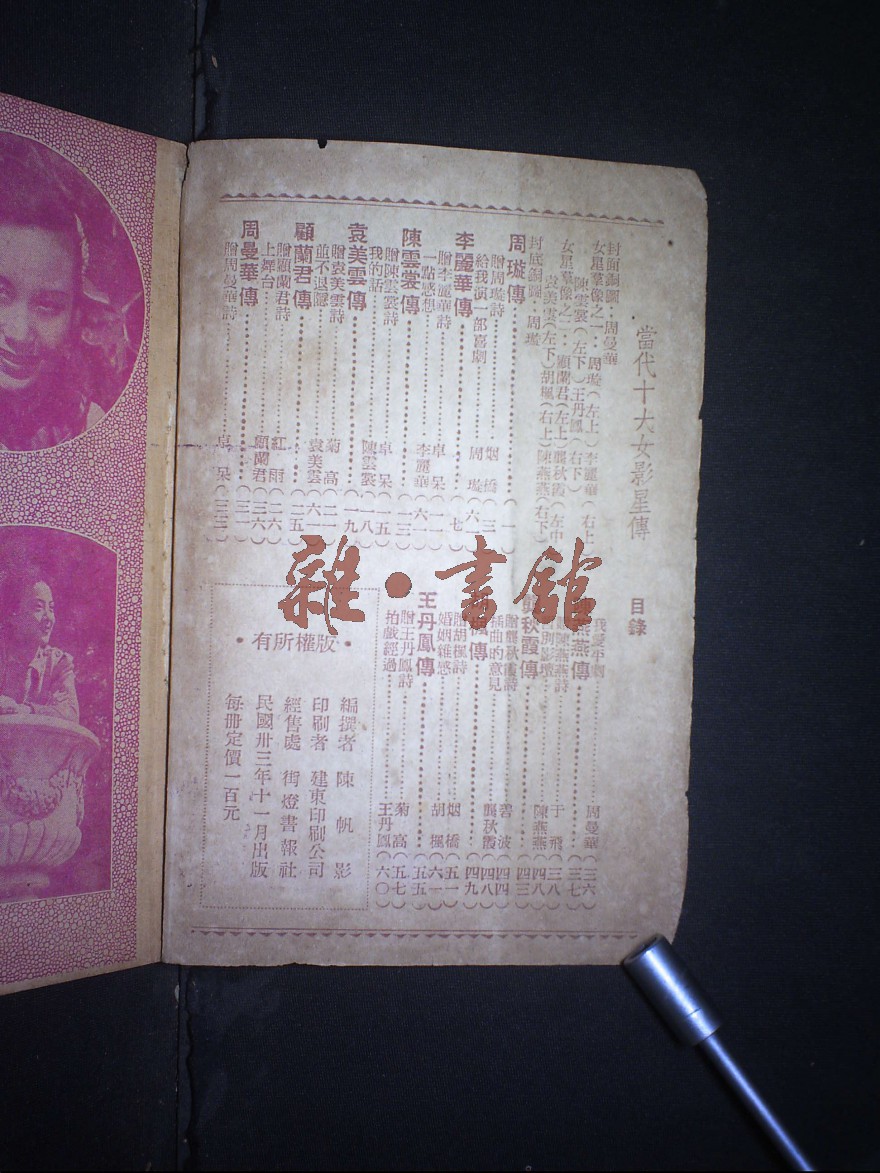 當代十大女影星傳
目錄
封面銅圖：周曼華
女星羣像之一：周璇（左上）李麗華（右上）
陳雲裳（左下）王丹鳳（右下）
女星羣像之二：顧蘭君（左上）龔秋霞（左中）
袁美雲（左下）胡楓（右上）陳燕燕（右下）
封底銅圖：周璇
周璇傳（一）
贈周璇詩 烟橋（三）
給我演一部喜劇 周璇（六）
李麗華傳（七）
贈李麗華詩 卓呆（一二）
一點感想 李麗華（一六）
陳雲裳傳（一三）
贈陳雲裳詩 卓呆（一五）
我的話 陳雲裳（一八）
袁美雲傳（一九）
贈袁美雲詩 菊高（二一）
並不退隱 袁美雲（六一）
顧蘭君傳（二五）
贈顧蘭君詩 紅雨（二六）
上舞台 顧蘭君（三六）
周曼華傳（三一）
贈周曼華詩 卓呆（三三）
周曼華（三六）
燕燕傳（三七）
陳燕燕詩 于飛（三八）
陳燕燕（四八）
秋霞傳（四三）
贈龔秋霞詩 碧波（四四）
插曲的意見 龔秋霞（四八）
楓傳（四九）
贈胡楓詩 烟橋（五一）
婚姻雜感 胡楓（六一）
王丹鳳傳（五五）
贈王丹鳳詩 菊高（五七）
拍戲經過 王丹鳳（六〇）
·有所權版·
編撰者 陳帆影
印刷者 建東印刷公司
經售處 街燈書報社
民國卅三年十一月出版
每冊定價一百元
雜·書館